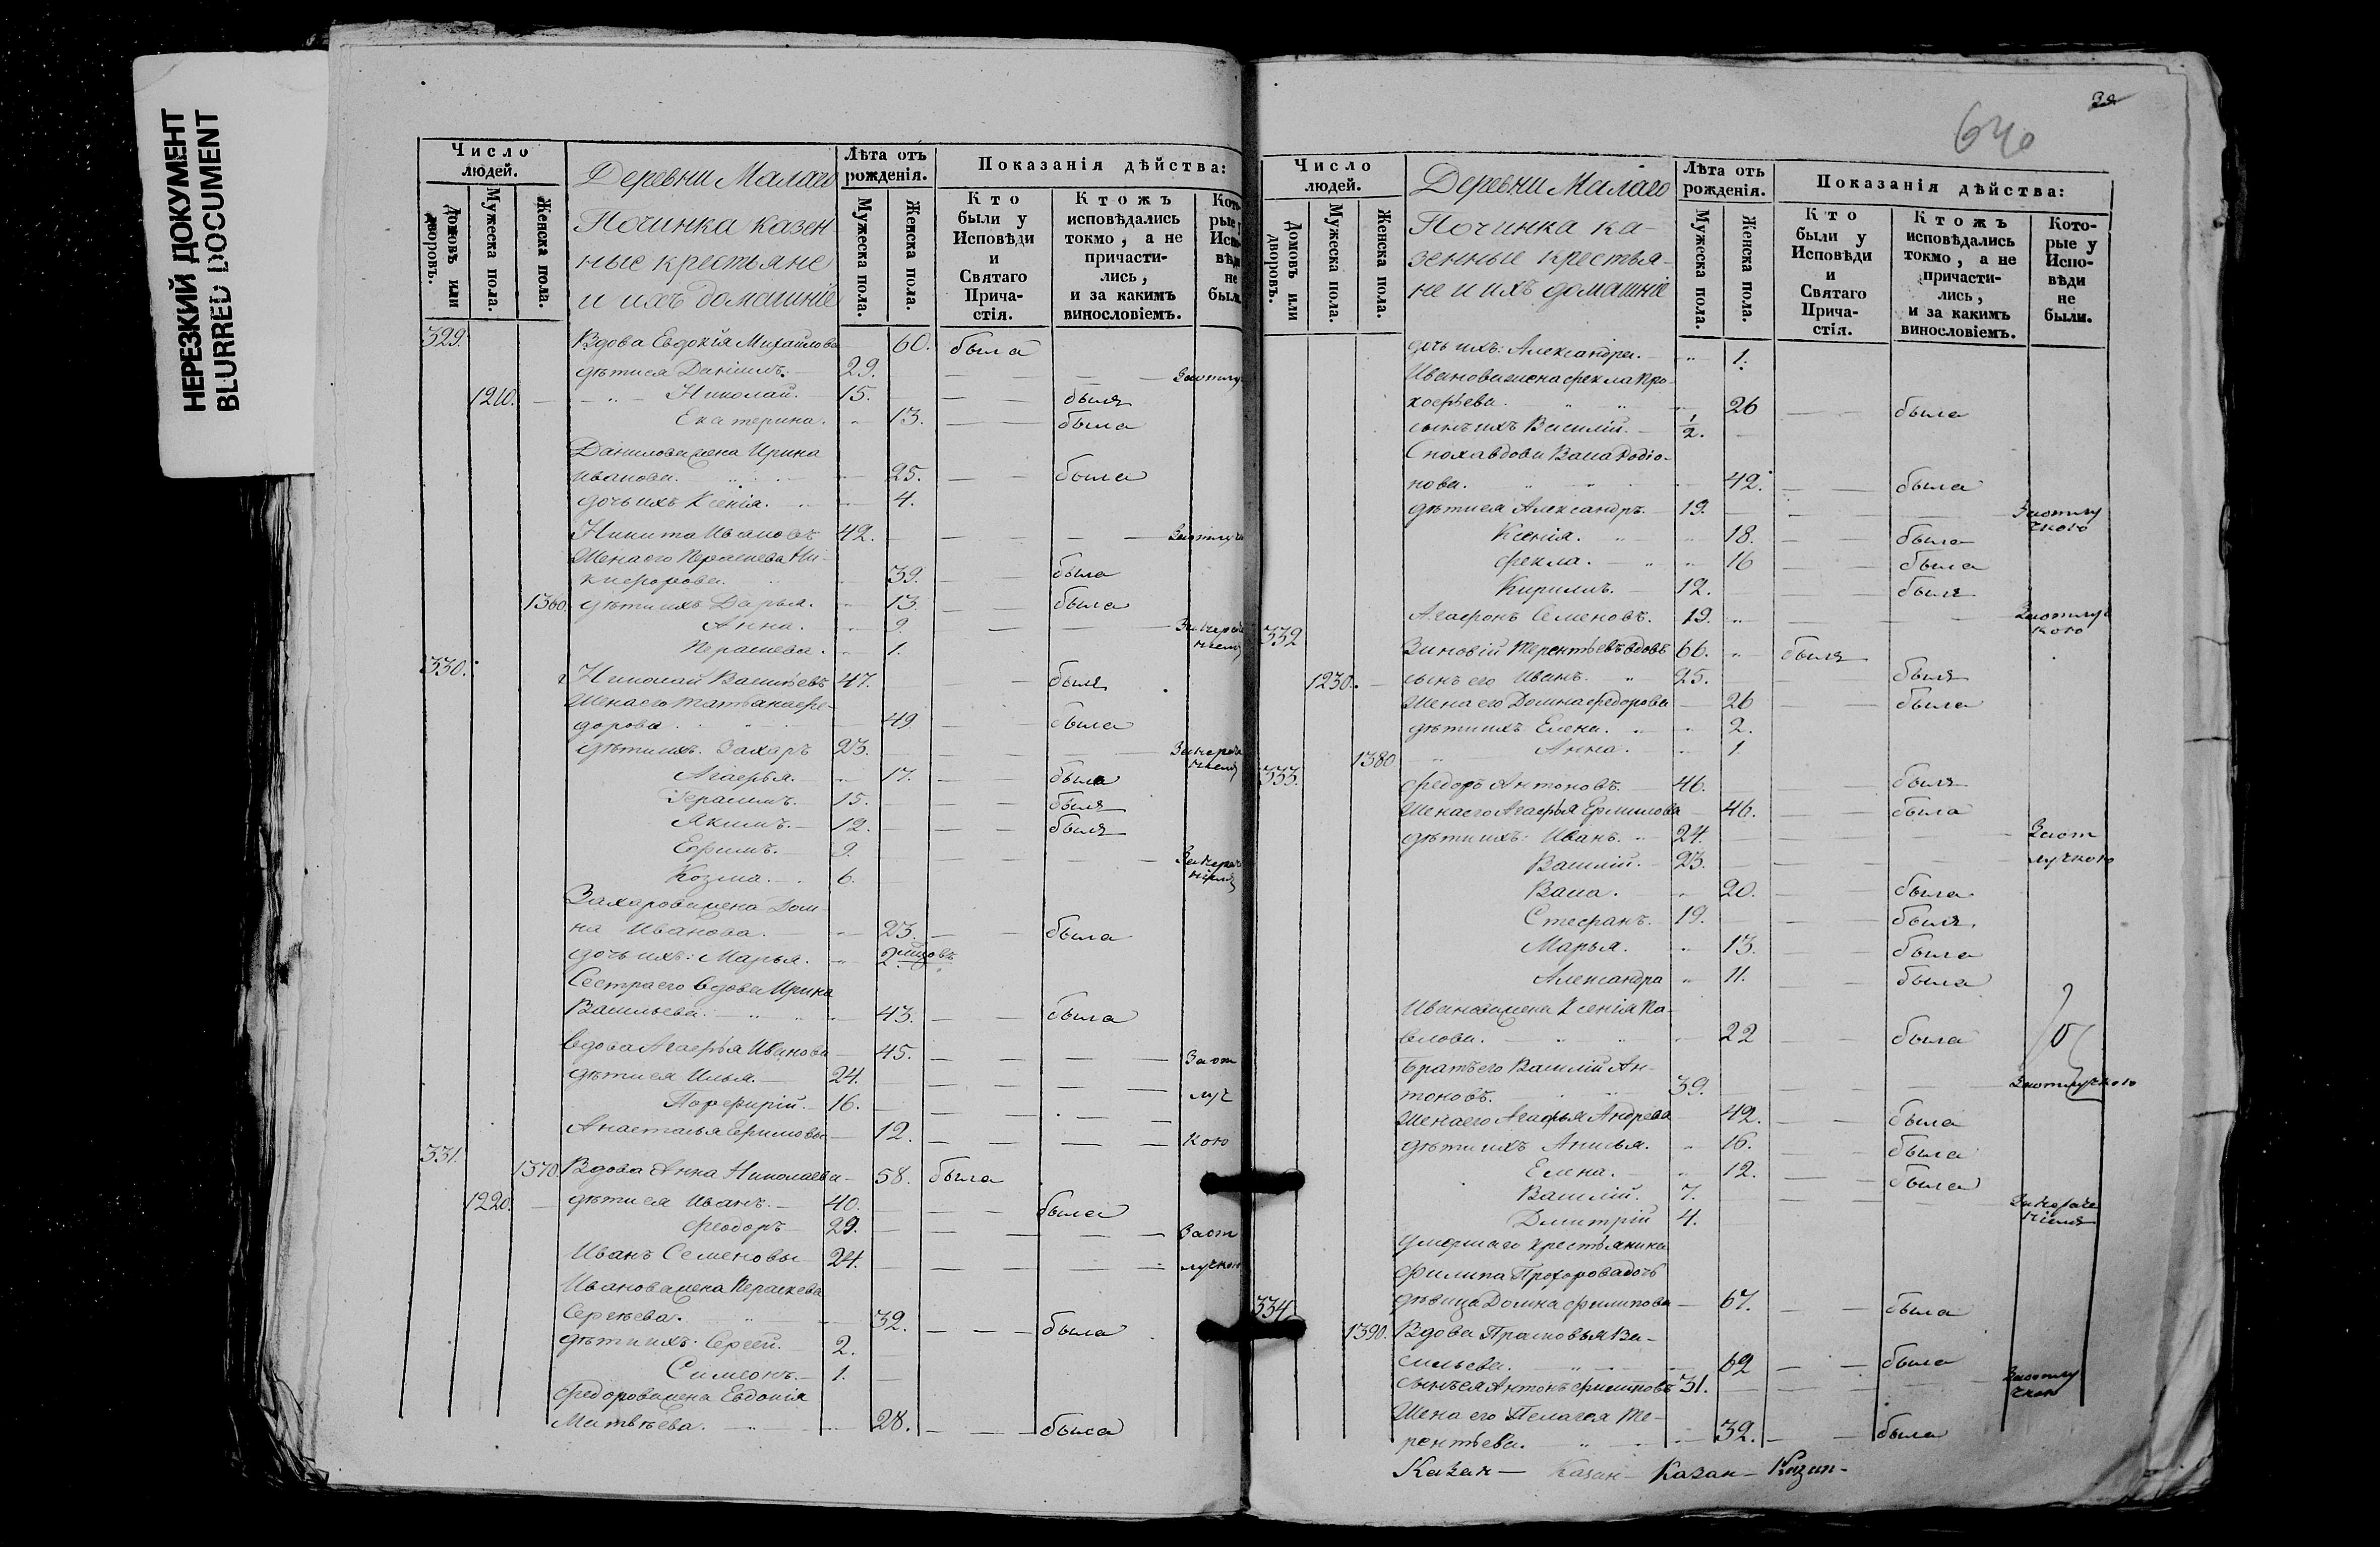 НЕРЕЗКИЙ ДОКУМЕНТ
BLURRED DOCUMENT
Число людей.
Домовъ или дворовъ.
Мужеска пола.
Женска пола.
Деревни Малаго
Починка казен
ные крестьяне
и ихъ домашніе
Лѣта отъ рожденія.
Мужеска пола.
Женска пола.
Показанія дѣйства:
Кто были у Исповѣди и Святаго Прича-стія.
Ктожъ исповѣдались токмо, а не причасти-лись, и за какимъ винословіемъ.
329. Вдова Евдокія Михайлова 60. была
дѣти ея Даніилъ. 29.
1210. Николай. 15. былъ
Екатерина. 13. была
Данилова жена Ирина
Иванова. 25. была
дочь ихъ Ксенія. 4.
Никита Ивановъ 42.
Жена его Параскева Ни-
кифорова. 39. была
1360. дѣти ихъ Дарья. 13. была
Анна. 9.
Параскева. 1.
330. Николай Васильевъ 47. былъ
Жена его Татьяна Фе-
дорова. 49. была
дѣти ихъ. Захаръ 23.
Агафья. 17. была
Герасимъ. 15. былъ
Якимъ. 12. былъ
Ефимъ. 9.
Козма. 6.
Захарова жена Дом-
на Иванова. 23. была
дочь ихъ: Марья. 2
Сестра его вдова Ирина
Васильева. 43. была
вдова Агафья Иванова 45. За от
дѣти ея Илья. 24. луч
Порфирій. 16.
Анастасья Ефимова 12. кою
331. 1370. Вдова Анна Николаева 58. была
1220. дѣти ея Иванъ. 40. былъ
Феодоръ 29. За от
Иванъ Семеновы 24. лучкою
Иванова жена Параскева
Сергеева. 32. была
дѣти ихъ: Сергей. 2.
Симеонъ. 1.
Федорова жена Евдокія
Матвѣева. 28. была
640
Число людей.
Домовъ или дворовъ.
Мужеска пола.
Женска пола.
Деревни Малаго
Починка ка-
зенные крестья-
не и ихъ домашніе
Лѣта отъ рожденія.
Мужеска пола.
Женска пола.
Показанія дѣйства:
Кто были у Исповѣди и Святаго Прича-стія.
Ктожъ исповѣдались токмо, а не причасти-лись, и за какимъ винословіемъ.
Кото-рые у Испо-вѣди не были.
дочь ихъ: Александра. 1.
Иванова жена Фекла Про-
кофьева. 26 была
сынъ ихъ Василій. 1/2.
Сноха вдова Васа Родіо-
нова. 42. была
дѣти ея Александръ. 19. За отлучкою
Ксенія. 18. была
Фекла. 16 была
Кириллъ. 12. былъ
Агафонъ Семеновъ. 19. За отлучкою
332 Зиновій Терентьевъ вдовъ 66. былъ
1230. сынъ его Иванъ. 25. былъ
Жена его Домна Федорова 26 была
дѣти ихъ Елена. 2.
1380 Анна. 1
333. Федоръ Антоновъ. 46. былъ
Жена его Агафья Ермилова 46. была
дѣти ихъ: Иванъ. 24. За от
Василій. 23. лучкою
Васа. 20. была
Стефанъ. 19. былъ.
Марья. 13. была
Александра 11. была
Иванова жена Ксенія Па-
влова. 22 была
Братъ его Василій Ан-
тоновъ. 39. За отлучкою
Жена его Агафья Андреева 42. была
дѣти ихъ Анисья. 16. была
Елена. 12. была
Василій. 7.
Дмитрій 4.
Умершаго крестьянина
Филипа Прохорова дочь
дѣвица Домна Филипова 67. была
334 1390. Вдова Прасковья Ва-
сильева. 62 была
сынъ ея Антонъ Филиповъ 31. За отлучкою
Жена его Пелагея Те-
рентьева. 32. была
Казан— Казан— Казан— Казан—